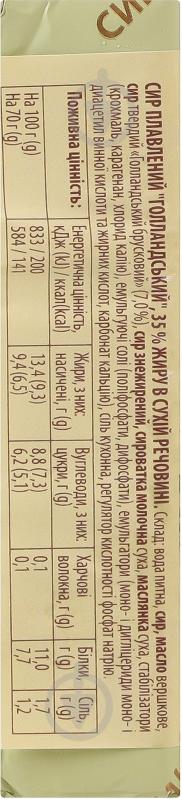 СИР ПЛАВЛЕНИЙ "ГОЛЛАНДСЬКИЙ", 35% ЖИРУ В СУХІЙ РЕЧОВИНІ. Склад: вода питна, сир, масло вершкове,
сир твердий «Голландський брусковий» (7,0%), сир знежирений, сироватка молочна суха, маслянка суха, стабілізатори
(крохмаль, карагенан, хлорид калію), емульгуючі солі (поліфосфати, дифосфати), емульгатори (моно- і дигліцериди моно- і
діацетил винної кислоти та жирних кислот, карбонат кальцію), сіль кухонна, регулятор кислотності фосфат натрію.
Поживна цінність: Енергетична цінність, кДж (kJ) / ккал(kcal) Жири, з них: насичені, г (g) Вуглеводи, з них: цукри, г (g) Харчові волокна, г (g) Білки, г (g) Сіль, г (g)
На 100 г (g) 833 / 200 13,4 (9,3) 8,8 (7,3) 0,1 11,0 1,7
На 70 г (g) 584 / 141 9,4 (6,5) 6,2 (5,1) 0,1 7,7 1,2